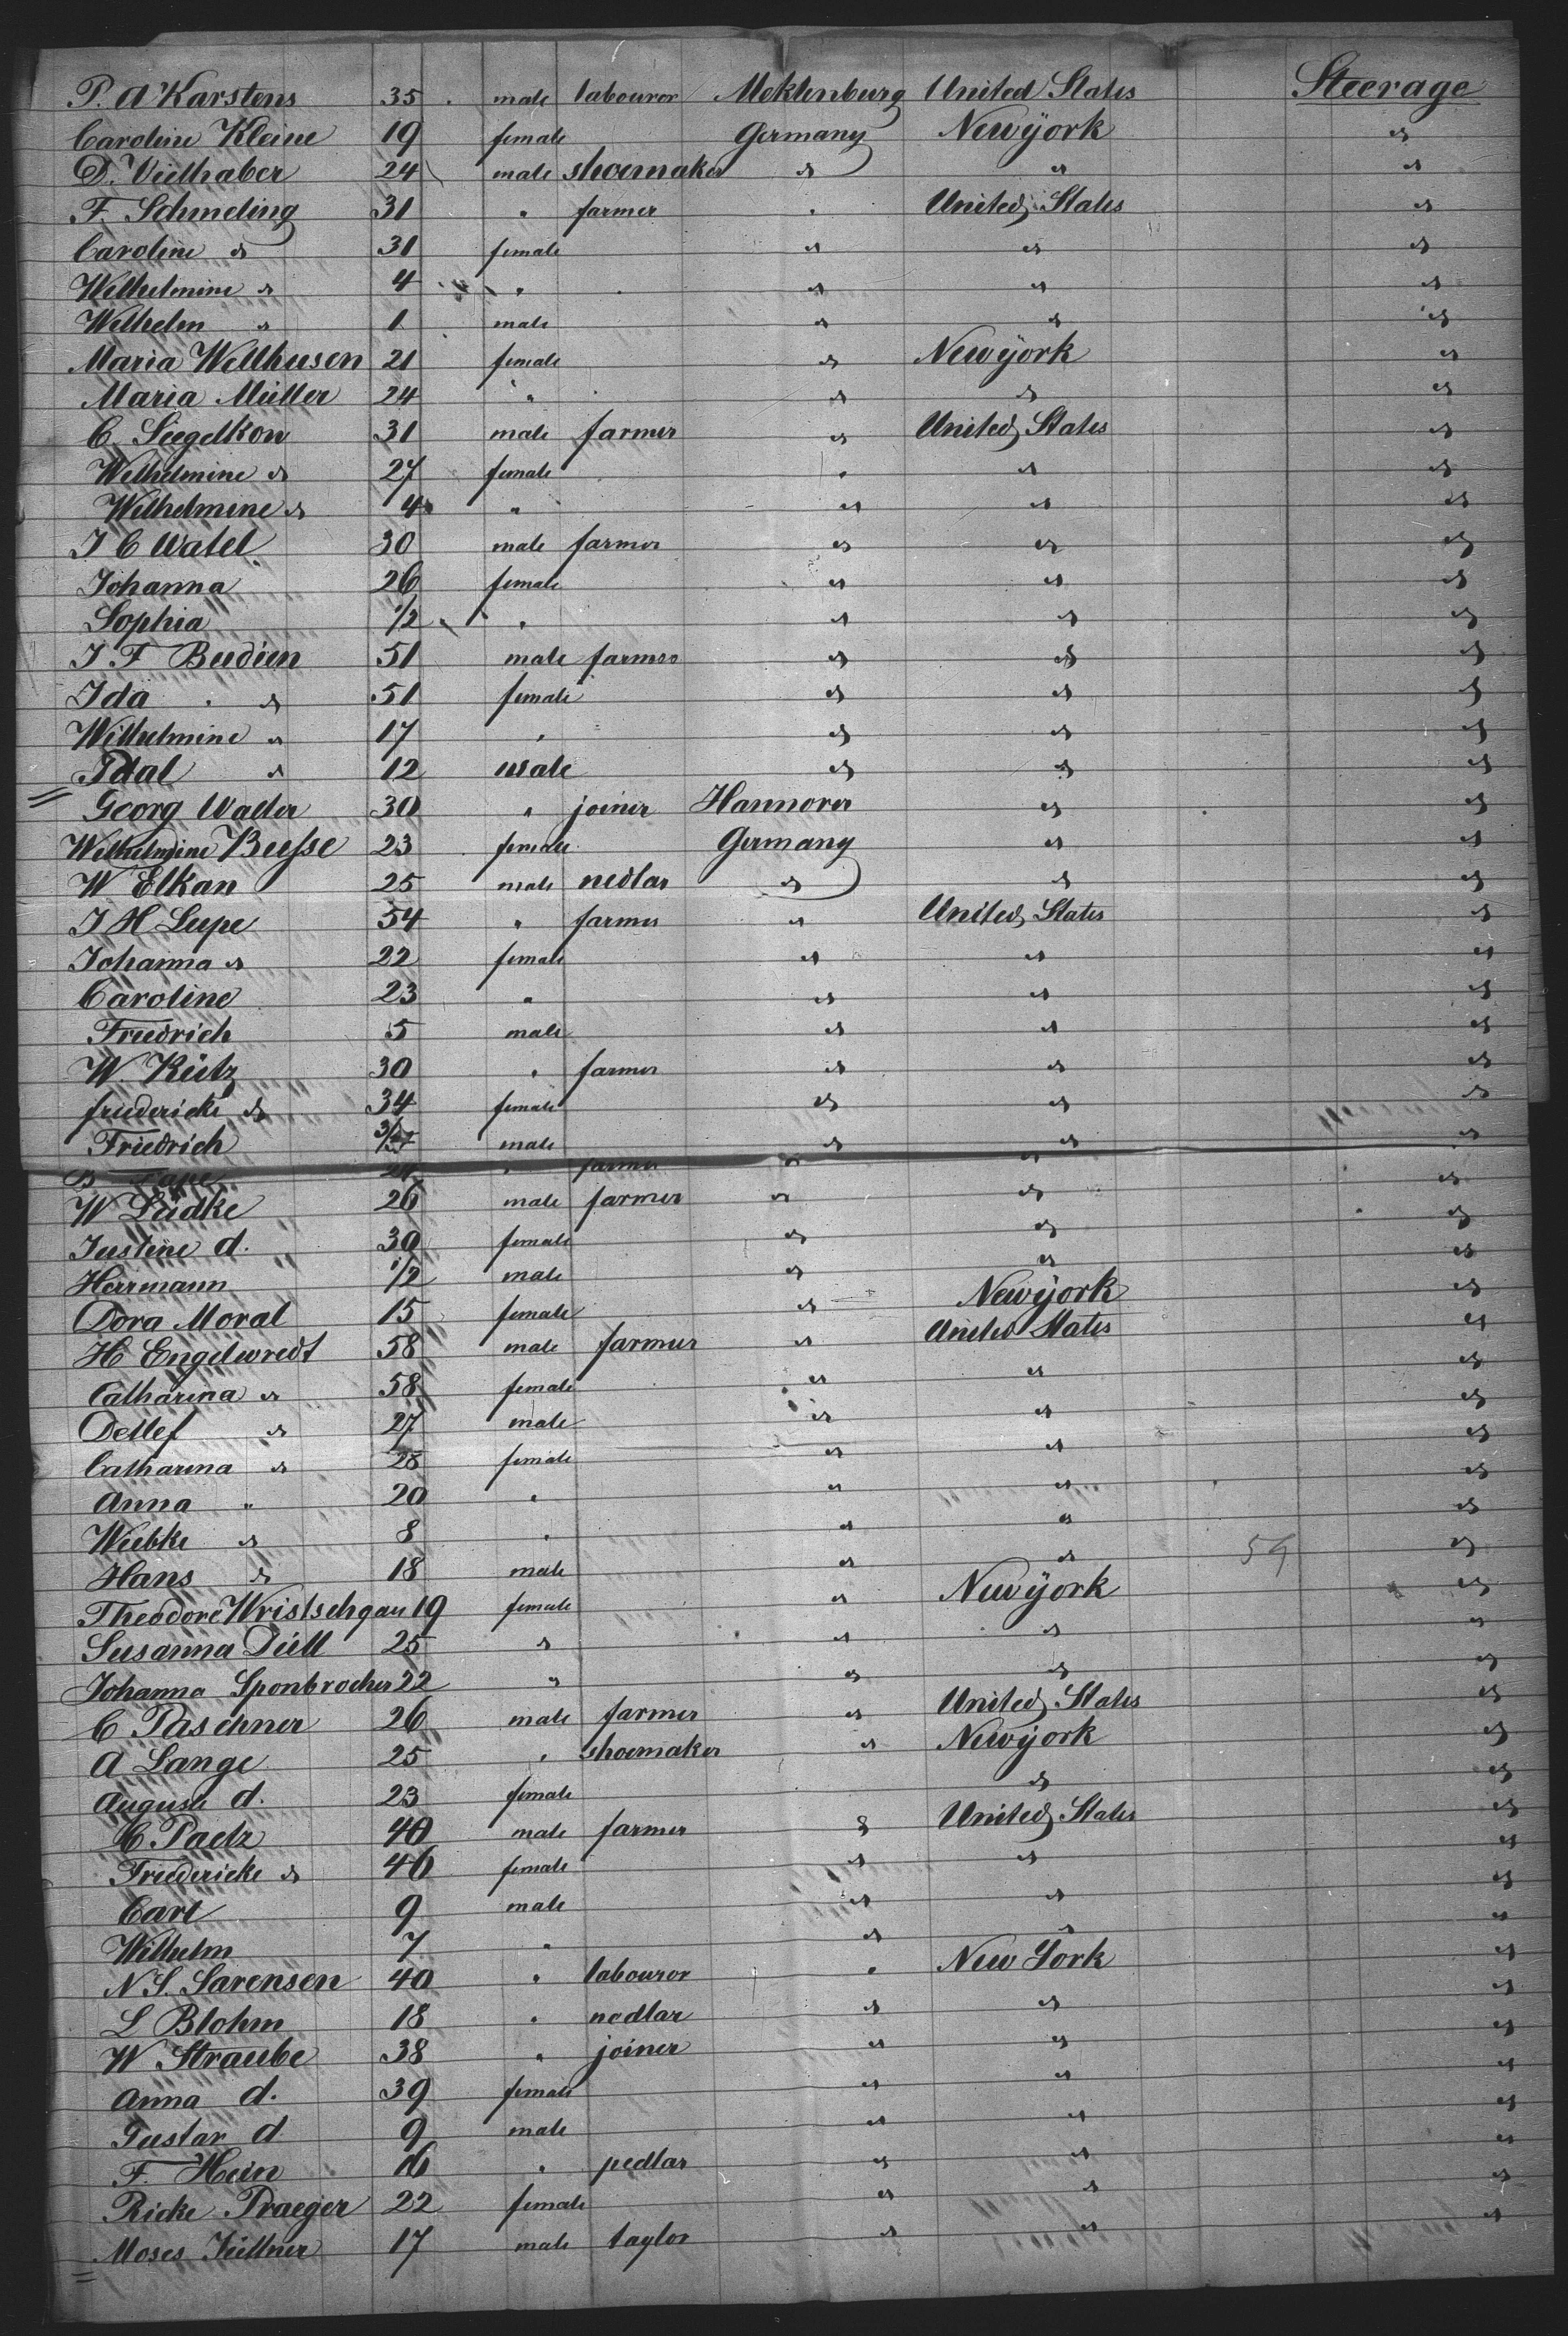 P. A Karstens 35 male labouror Meklenburg United States Steerage
Caroline Kleine 19 female Germany Newÿork "
D. Vielhaber 24 male shoemaker " " "
F. Schmeling 31 " farmer " United States "
Caroline " 31 female " " "
Wilhelmine " 4 " " " "
Wilhelm " 1 male " " "
Maria Wellhusen 21 female " Newÿork "
Maria Müller 24 " " " "
C. Siegelkon 31 male farmer " United States "
Wilhelmine " 27 female " " "
Wilhelmine " 4 " " " "
J C Watel 30 male farmer " " "
Johanna 26 female " " "
Sophia 1/2 " " " "
J. F Budien 51 male farmer " " "
Ida " 51 female " " "
Wilhelmine " 17 " " " "
" 12 male " " "
Georg Walter 30 " joiner Hannover " "
Wilhelmine Busse 23 female Germany " "
W Elkan 25 male nedlar " " "
J H Lupe 54 " farmer " United States "
Johanna " 22 female " " "
Caroline 23 " " " "
Friedrich 5 male " " "
W. Kütz 30 " farmer " " "
friedericke " 34 female " " "
Friedrich male " " "
B 24 " farmer " " "
W Lüdke 26 male farmer " " "
Justine d. 30 female " " "
Herrmann 1/2 male " " "
Dora Moral 15 female " Newÿork "
H Engelwredt 58 male farmer " United States "
Catharina " 58 female " " "
Detlef " 27 male " " "
Catharina " 28 female " " "
Anna " 20 " " " "
Wiebke " 8 " " " "
Hans " 18 male " " 59 "
Theodore Wristschgau 19 female " Newÿork "
Susanna Düll 25 " " " "
Johanna Sponbrocher 22 " " " "
C Paschner 26 male farmer " United States "
A Lange 25 " shoemaker " Newÿork "
Auguste d. 23 female " "
C. Paetz 40 male farmer " United States "
Friedericke " 46 female " " "
Carl 9 male " " "
Wilhelm 7 " " " "
N. S. Sarensen 40 " labouror " New York "
L Blohm 18 " nedlar " " "
W Straube 38 " joiner " " "
Anna d. 39 female " " "
Gustav d 9 male " " "
F. Hein 16 " pedlar " " "
Ricke Praeger 22 female " " "
Moses Jüllner 17 male taylor " " "